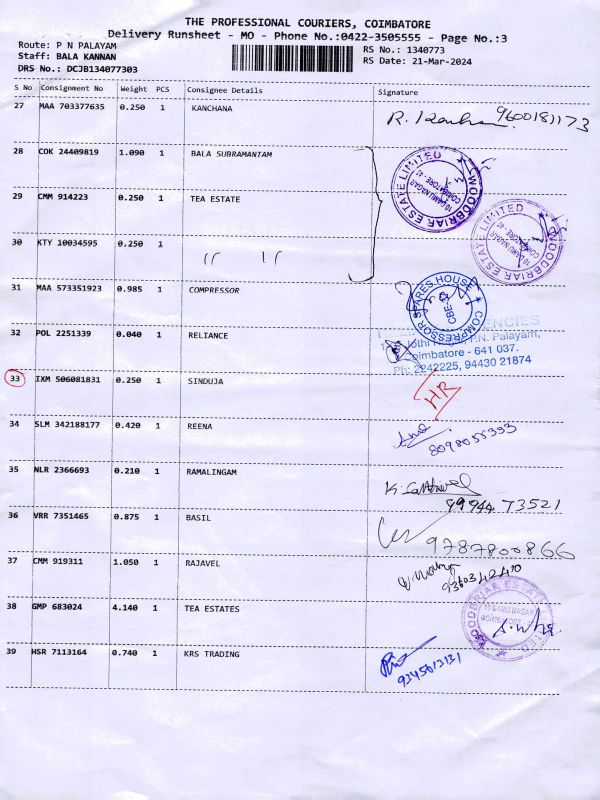 THE PROFESSIONAL COURIERS, COIMBATORE
Delivery Runsheet - MO - Phone No.:0422-3505555 - Page No.:3
Route: P N PALAYAM
RS No.: 1340773
Staff: BALA KANNAN
RS Date: 21-Mar-2024
DRS No.: DCJB134077303
S No Consignment No Weight PCS Consignee Details Signature
27 MAA 703377635 0.250 1 KANCHANA R. 9600181173
28 COK 24409819 1.090 1 BALA SUBRAMANIAM
WOODBRIAR ESTATE LIMITED
29 CMM 914223 0.250 1 TEA ESTATE
WOODBRIAR ESTATE LIMITED
30 KTY 10034595 0.250 1 " "
31 MAA 573351923 0.985 1 COMPRESSOR
COMPRESSOR SPARES HOUSE
32 POL 2251339 0.040 1 RELIANCE
P.N. Palayam,
Coimbatore - 641 037.
Ph: 2242225, 94430 21874
33 IXM 506081831 0.250 1 SINDUJA HR
34 SLM 342188177 0.420 1 REENA
8098055333
35 NLR 2366693 0.210 1 RAMALINGAM
73521
36 VRR 7351465 0.875 1 BASIL
9787800866
37 CMM 919311 1.050 1 RAJAVEL
38 GMP 683024 4.140 1 TEA ESTATES
39 HSR 7113164 0.740 1 KRS TRADING